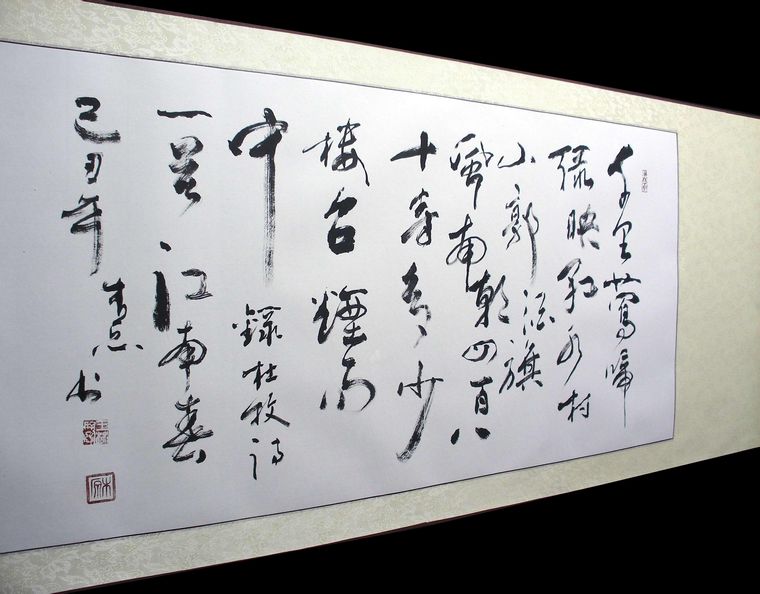 千里鶯啼
绿映红水村
山郭酒旗
風南朝四百八
十寺多少
楼台煙雨
中
錄杜牧诗
一首江南春
己丑年
书